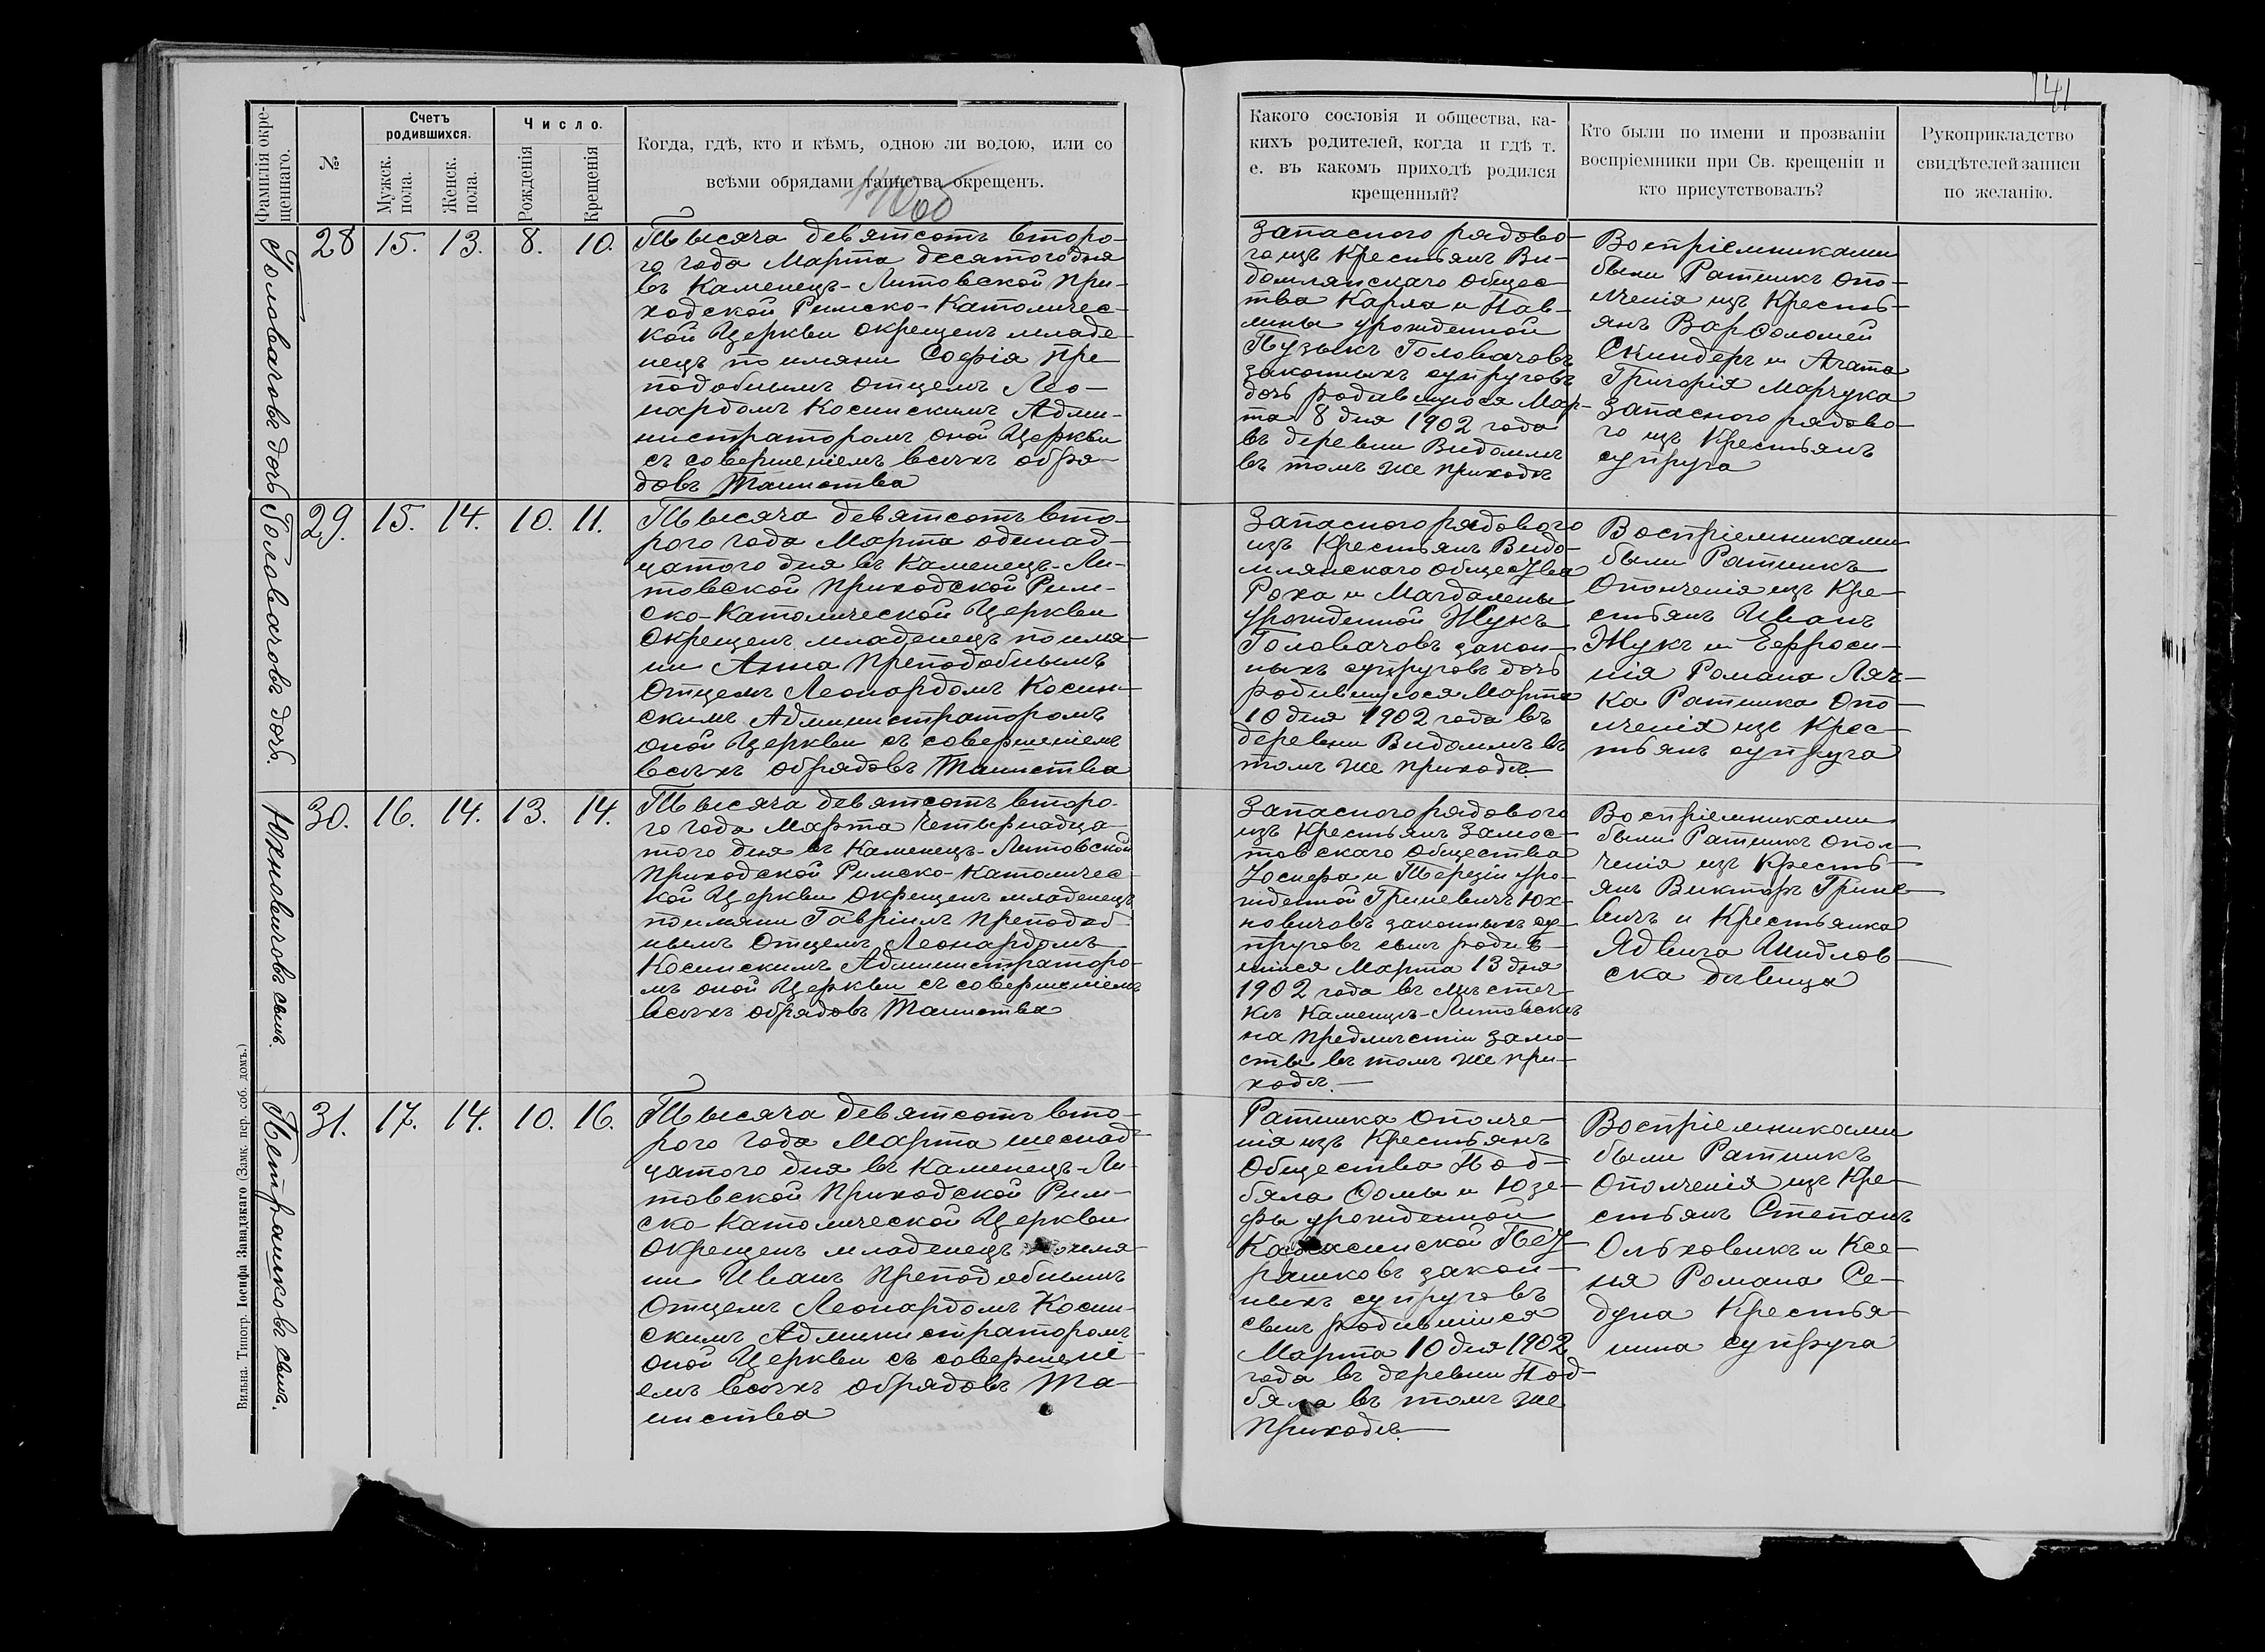 141
Фамилія окре-
щеннаго.
№
Счетъ
родившихся.
Мужск.
пола.
Женск.
пола.
Число.
Рожденія
Крещенія
Когда, гдѣ, кто и кѣмъ, одною ли водою, или со
всѣми обрядами таинства окрещенъ.
Какого сословія и общества, ка-
кихъ родителей, когда и гдѣ т.
е. въ какомъ приходѣ родился
крещенный?
Кто были по имени и прозванію
воспріемники при Св. крещеніи и
кто присутствовалъ?
Рукоприкладство
свидѣтелей записи
по желанію.
Головачовъ дочь
28 15. 13. 8. 10.
Тысяча девятсотъ второ-
го года Марта десятого дня
въ Каменецъ-Литовской При-
ходской Римско-Католичес-
кой Церкви окрещенъ младе-
нецъ по имяни Софія Пре-
подобнымъ Отцемъ Лео-
нардомъ Косинскимъ Адми-
нистраторомъ оной Церкви
съ совершеніемъ всѣхъ обря-
довъ Таинства
Запасного рядово-
го изъ Крестьянъ Ви-
домлянскаго Общес-
тва Карла и Пав-
лины урожденной
Пузыкъ Головачовъ
законныхъ супруговъ
дочь родившуюся Мар-
та 8 дня 1902 года
въ деревни Видомлѣ
въ томъ же приходѣ
Воспріемниками
были Ратникъ Опо-
лченія изъ Кресть-
янъ Варфоломей
Скиндеръ и Агата
Григорія Марчука
Запасного рядово-
го изъ Крестьянъ
супруга
Головачовъ дочь.
29. 15. 14. 10. 11.
Тысяча девятсотъ вто-
рого года Марта одинад-
цатого дня въ Каменецъ-Ли-
товской Приходской Рим-
ско-Католической Церкви
Окрещенъ младенецъ по имя-
ни Анна Преподобнымъ
Отцемъ Леонардомъ Косин-
скимъ Администраторомъ
оной Церкви съ совершеніемъ
всѣхъ обрядовъ Таинства
Запасного рядового
изъ Крестьянъ Видо-
млянскаго Общества
Роха и Магдалены
урожденной Жукъ
Головачовъ закон-
ныхъ супруговъ дочь
родившуюся Марта
10 дня 1902 года въ
деревни Видомлѣ въ
томъ же приходѣ
Воспріемниками
были Ратникъ
Ополченія изъ Кре-
стьянъ Иванъ
Жукъ и Ефроси-
нія Романа Ляч-
ка Ратника Опо-
лченія изъ Крес-
тьянъ супруга
Юхновичовъ сынъ.
30. 16. 14. 13. 14.
Тысяча девятсотъ второ-
го года Марта Четырнадца-
того дня въ Каменецъ-Литовской
Приходской Римско-Католичес-
кой Церкви окрещенъ младенецъ
по имяни Гавріилъ Преподоб-
нымъ Отцемъ Леонардомъ
Косинскимъ Администраторо-
мъ оной Церкви съ совершеніемъ
всѣхъ обрядовъ Таинства
Запасного рядового
изъ Крестьянъ Замос-
товскаго Общества
Іосифа и Терезіи уро-
жденной Гриневичъ Юх-
новичовъ законныхъ су-
пруговъ сынъ родив-
шійся Марта 13 дня
1902 года въ мѣстеч-
кѣ Каменцѣ-Литовскѣ
на предмѣстіи Замо-
сты въ томъ же при-
ходѣ.
Воспріемниками
были Ратникъ Опол-
ченія изъ Кресть-
янъ Викторъ Грине-
вичъ и Крестьянка
Ядвига Шидлов-
ска дѣвица
Петрашковъ сынъ.
31. 17. 14. 10. 16.
Тысяча девятсотъ вто-
рого года Марта шеснад-
цатого дня въ Каменецъ-Ли-
товской Приходской Рим-
ско-Католической Церкви
Окрещенъ младенецъ по имя-
ни Иванъ Преподобнымъ
Отцемъ Леонардомъ Косин-
скимъ Администраторомъ
оной Церкви съ совершені-
емъ всѣхъ обрядовъ Та-
инства
Ратника Ополче-
нія изъ Крестьянъ
Общества Под-
бяла Ѳомы и Юзе-
фы урожденной
Пет-
рашковъ закон-
ныхъ супруговъ
сынъ родившійся
Марта 10 дня 1902
года въ деревни Под-
бяла въ томъ же
приходѣ.
Воспріемниками
были Ратникъ
Ополченія изъ Кре-
стьянъ Степанъ
Ольховикъ и Ксе-
ня Романа Се-
дуна Крестья-
нина супруга
Вильна. Типогр. Іосифа Завадзкаго (Замк. пер. соб. домъ.)